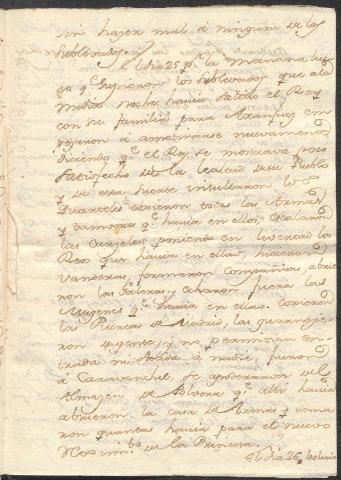 sin hazer mal á ningun de los
Soblevados.
El dia 25 pr. la mañana lue
go qe. supieron los soblevados que a la
media noche havia salido el Rey
con su familia para Aranjuez em
pezaron á amotinarse nuevamente
diciendo qe. el Rey se mostrava poco
satisfecho de la lealtad de su Pueblo
y de esta suerte insultaron los
Quarteles cojieron todas las Armas
y tambores qe. havia en ellos, escalaron
las Carzeles poniendo en livertad los
Reos que havia en ellas, hicieron
vanderas, formaron compañias, abrie
ron las Galeras y echaron fuera las
Mugeres qe. havia en ellas. Cojieron
las Puertas de Madrid, las guarneçie
ron de gente, y no permitian en
trada ni salida á nadie, fueron
á Caravanchel, se apoderaron del
Almazen de Polvora qe. alli havia
abrieron la casa de Armas y toma
ron quantas havia para el nuevo
de la Princesa.
El dia 26 bolvio